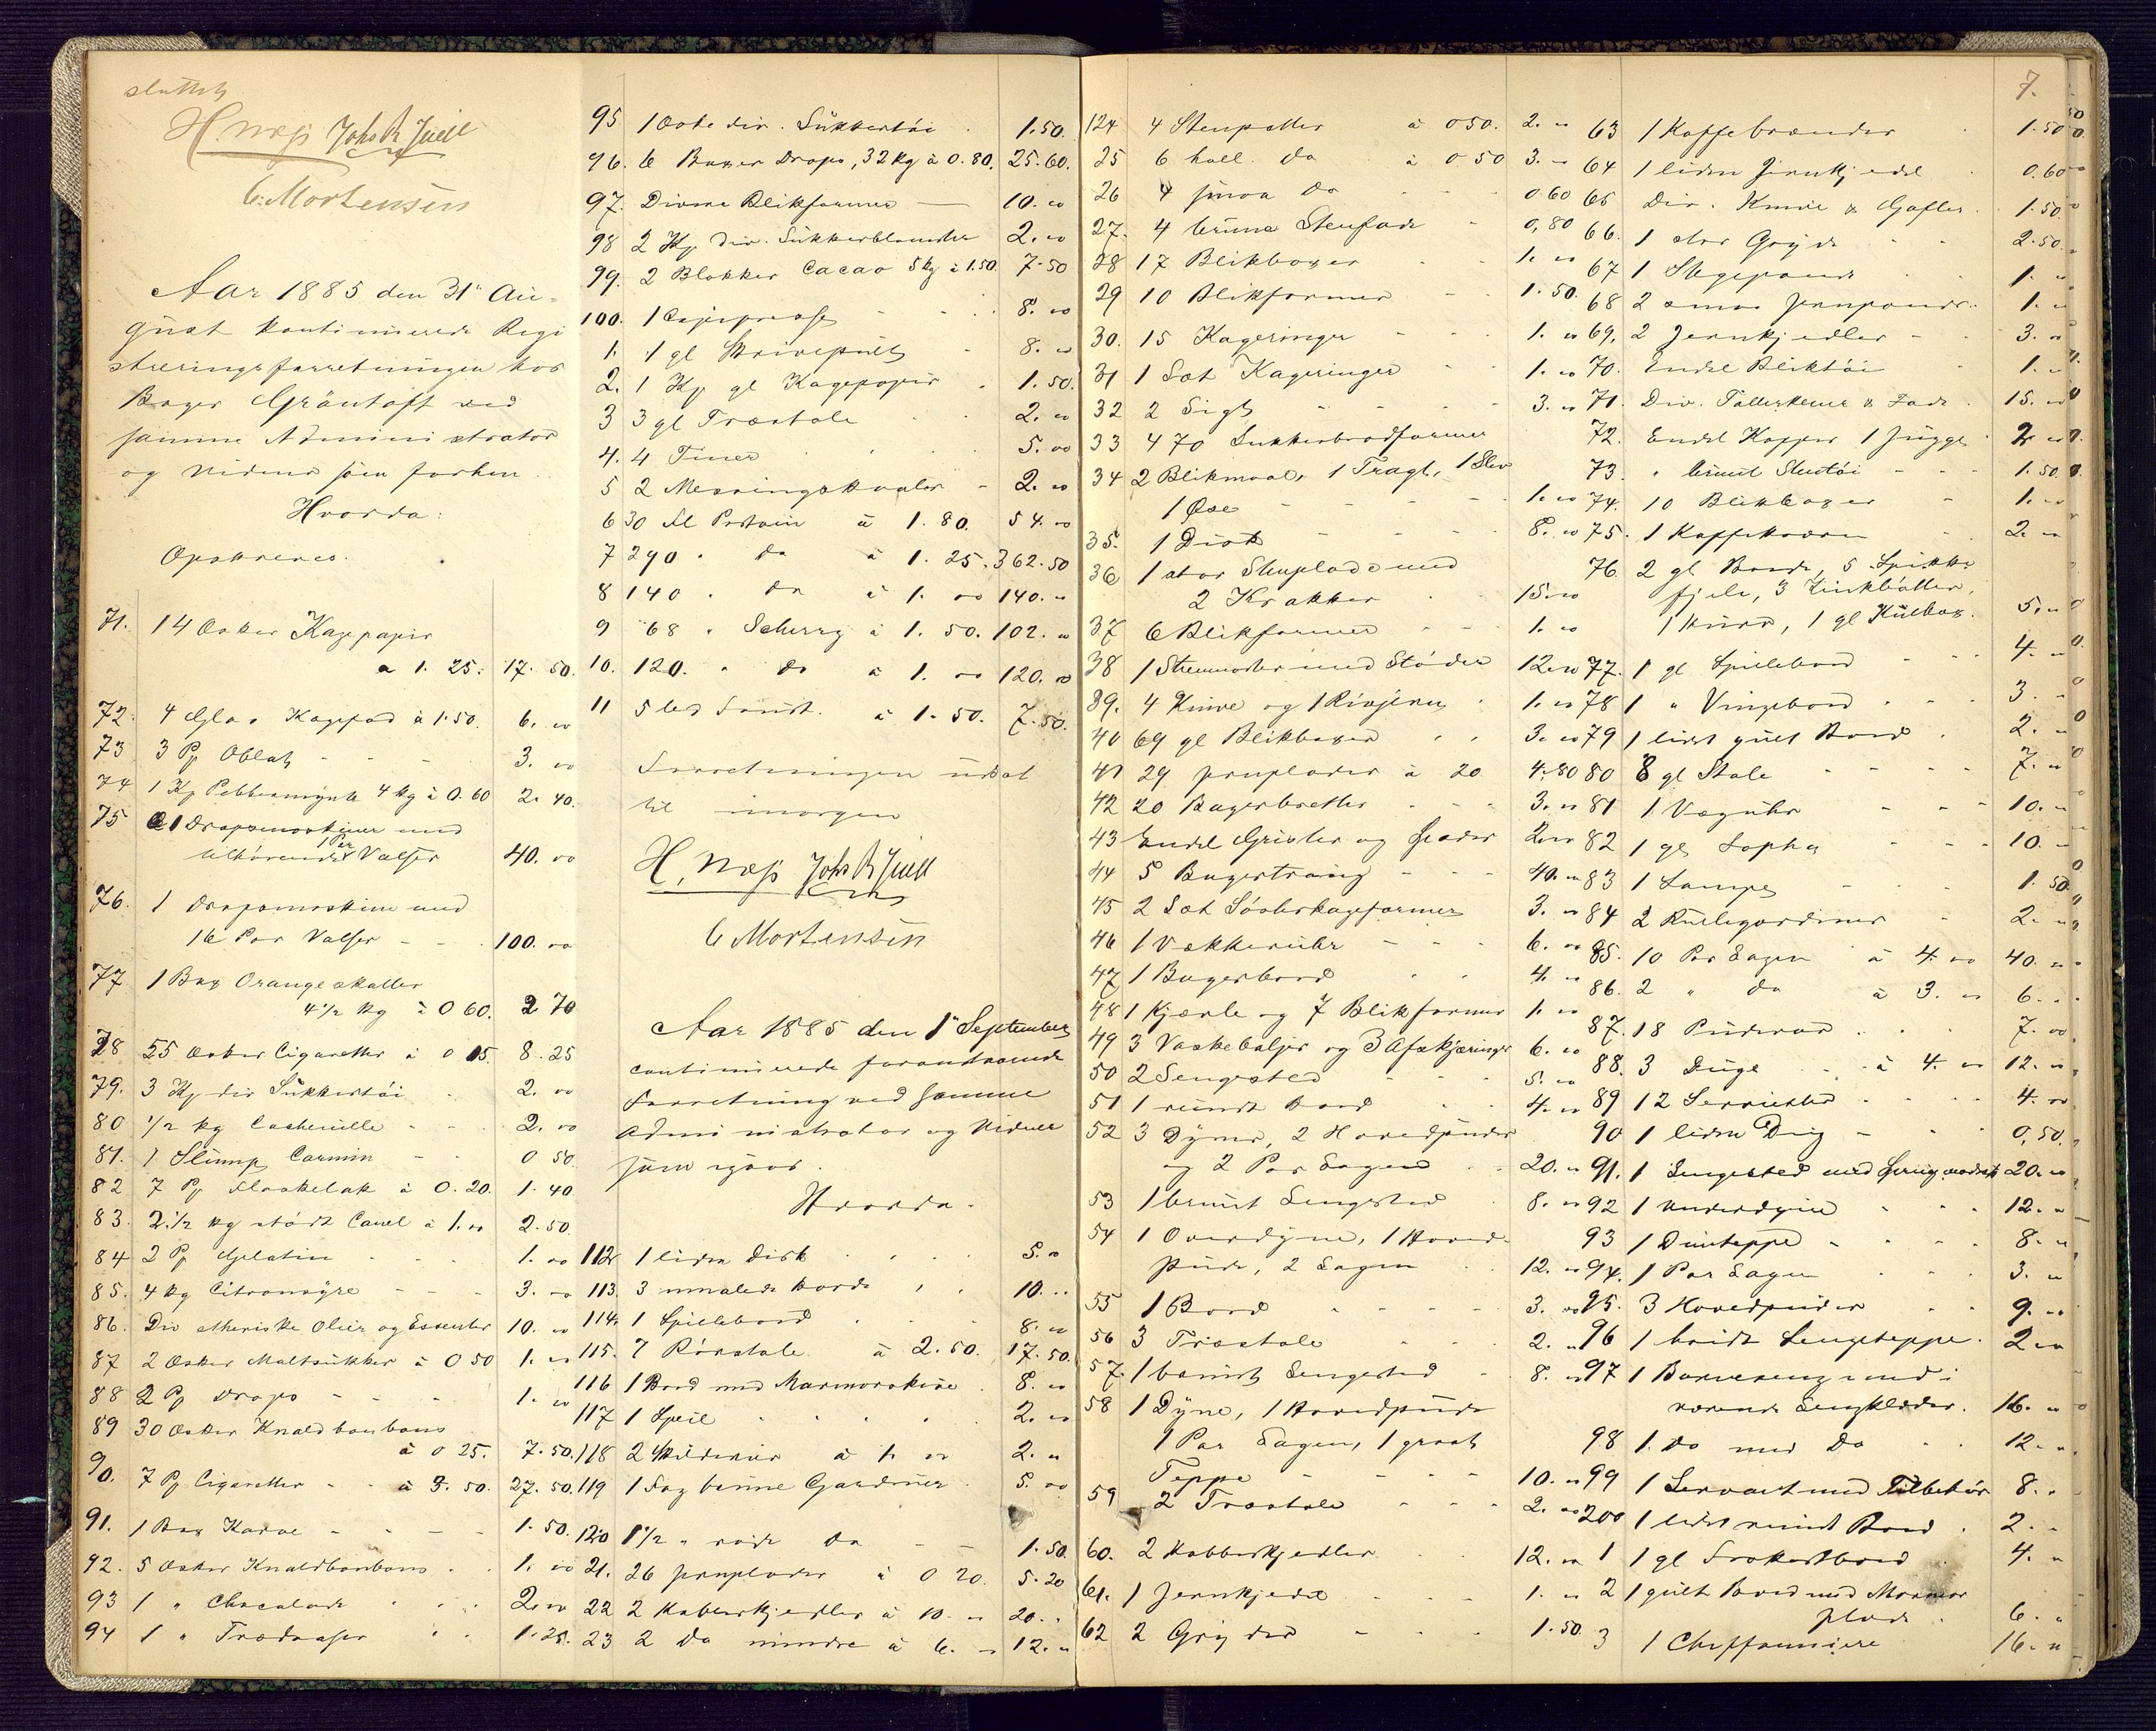 sluttet
H. Næss Johs R Juell
C. Mortensen
Aar 1885 den 31te Au-
gust kontinuerede Regi
streringsforretningen hos
Bager Gräntoft ved
samme Administrator
og Vidner som forhen
Hvorda:
Opskreves.
71. 14 Esker Kagepapir
a 1. 25. 17. 50.
72. 4 Glas Kagefad à 1.50. 6. 00
73 3 Pk Oblat - - - 3. 00
74 1 Kp Pebbermynte 4 kg à 0.60 2. 40.
75 1 Dropsmaskiner med
tilhørende 1 Par Valser 40. 00
76. 1 Dropsmaskine med
16 Par Valser - - 100. 00
77 1 Bax Orangeskaller
4 1/2 kg à 0 60. 2 70
78 55 Esker Cigaretter à 0 15. 8. 25
79. 3 Kp div Sukkertøi - 2. 00
80 1/2 kg Cochenille - - 2. 00
81. 1 Slump Carmin - - 0 50.
82 7 Pk Flaskelak à 0. 20. 1. 40.
83. 2 1/2 kg stødt Canel à 1. 00 2. 50.
84 2 Pk Gelatin - - 1. 00
85. 4 kg Citronsyre - - 3. 00
86. Div etheriske Olier og Essenter 10. 00
87 2 Esker Maltsukker à 0 50 1. 00
88 2 Pk Drops - - - 1. 00
89 30 Esker Knaldbonbons
à 0 25. 7. 50.
90. 7 Pk Cigaretter - - à 3. 50. 27. 50.
91. 1 Bax Karve - - - 1. 50.
92. 5 Esker Knaldbonbons . . 1. 00
93 1 " Chocolade . . . 2. 00
94 1 " Trædaaser . . 1. 25.
95 1 Eske div. Sukkertøi . 1. 50.
96. 6 Baxer Drops, 32 kg à 0. 80. 25. 60.
97. Diverse Blikformer — 10. 00
98 2 Kp div. Sukkerblomster 2. 00
99. 2 Blokker Cacao 5 kg à 1. 50. 7. 50
100. 1 Copipresse - - . 8. 00
1. 1 gl Skrivepult - 8. 00
2. 1 Kp gl Kagepapir . 1. 50.
3 3 gl Træstole . . 2. 00
4. 4 Tiner . . . 5. 00
5 2 Messingskaaler - 2. 00
6 30 Fl Portvin à 1. 80. 54. 00
7 290 . do à 1. 25. 362. 50
8 140 . do à 1. 00 140. 00
9 68 " Scherry à 1. 50. 102. 00
10. 120. " do à 1. 00 120. 00
11 5 à 1. 50. 7. 50.
Forretningen udsat
til imorgen
H. Næss Johs R Juell
C Mortensen
Aar 1885 den 1te September
continuerede foranstaaende
Forretning ved samme
Administrator og Vidner
som igaar.
Hvorda.
112 1 liden Disk . . . 5. 00
113. 3 umalede borde , . 10. ..
114. 1 Spillebord . . . 8. 00
115. 7 Rørstole à 2. 50. 17. 50.
116 1 Bord med Marmorskive . 8. 00
117 1 Speil . . . . 2. 00
118 2 Skilderier à 1. 00 2. 00
119 1 Fag brune Gardiner . 5. 00
120 1 1/2 " røde do - - 1. 50.
21. 26 Jernplader à 0 20. 5. 20
22 2 Kobberkjedler à 10. 00 20. .
23 2 do mindre à 6. 00 12. 00
7.
124 4 Stenpotter à 0 50. 2. 00
25 6 holl. do à 0 50 3. 00
26 4 smaa do - - - 0 60
27. 4 brune Stenfade - 0, 80
28 17 Blikboxer . - 1. 00
29 10 Blikformer - - 1. 50.
30. 15 Kageringer - - - 1. 00
31 1 Sæt Kageringer - 1. 00
32 2 Sigt - - - - 3. 00
33 470 Sukkerbrødformer
34 2 Blikmaal, 1 Tragt, 1 Slev
1 Øse - - - 1. 00
35. 1 Disk - - - 8. 00
36 1 stor Stenplade med
2 Krakker . . 15. 00
37 6 Blikformer - - - 1. 00
38 1 Stenmorter med Støder 12. 00
39. 4 Knive og 1 Rivjern 1. 00
40 69 gl Blikboxer . . 3. 00
41 29 Jernplader à 20. 4. 80
42 20 Bagerbretter . . . 3. 00
43 Endel Grisler og Spader 2. 00
44 5 Bagertraug - - - 40. 00
45 2 Sæt Sósterkageformer 3. 00
46 1 Vækkeruhr - - - 6. 00
47 1 Bagerbord . . 4. 00
48 1 Kjærle og 7 Blikformer 1. 00
49 3 Vaskebaljer og 3 Afskjæringer 6. 00
50 2 Sengested - - - 5. 00
51 1 rundt Bord . . 4. 00
52 3 Dyner, 2 Hovedpuder
og 2 Par Lagen . . 20. 00
53 1 brunt Sengested . 8. 00
54 1 Overdyne, 1 Hoved-
pude, 2 Lagen . . 12. 00
55 1 Bord - - - - 3. 00
56 3 Træstole - - - 2. 00
57. 1 brunt Sengested - 8. 00
58 1 Dyne, 1 Hovedpude
1 Par Lagen, 1 graat
Teppe - - - - 10. 00
59 2 Træstole - - - 2. 00
60. 2 Kobberkjedler - . 12. 00
61. 1 Jernkjedel - - . 1. 00
62 2 Gryder - - - 1. 50.
63 1 Kaffebrænder . 1. 50
64 1 liden Jernkjedel . 0. 60
65 Div. Knive & Gafler . 1. 50.
66. 1 stor Gryde - - 2. 50.
67 1 Stegepande . . 1. 00
68 2 smaa Jernpander . 1. 00
69. 2 Jernkjedler - - 3. 00
70. Endel Bliktøi - 1. 00
71. Div. Tallerkener & Fade . 15. 00
72. Endel Kopper 1 Jugge . 2. 00
73. " brunt Stentøi - - - 1. 50.
74. 10 Blikboxer - 1. 00
75. 1 Kaffekværn . 2. 00
76. 2 gl Borde, 5 Spikke
fjele, 3 Zinkbøtter,
1 Kurv, 1 gl Kulbox. 5. 00
77. 1 gl Spillebord - - - 4. 00
78 1 " Vingebord . . . 3. 00
79 1 lidet gult Bord . 2. 00
80 8 gl Stole - - - - 7. 00
81 1 Væguhr - - - 10. 00
82 1 gl Sopha - - - 10. 00
83 1 Lampe - - - 1. 50.
84 2 Rullegardiner - 2. 00
85. 10 Par Lagen à 4. 00 40. 00
86. 2 " do à 3. 00 6. .
87. 18 Pudevar . . . 7. 00
88. 3 Duge . . à 4. 00 12. 00
89 12 Servietter . . . . 4. 00
90 1 liden Dug - . . 0, 50.
91. 1 Sengested med 20. 00
92 1 Underdyne . . . 12. 00
93 1 Dunteppe - - - 8. 00
94. 1 Par Lagen . . . 3. 00
95. 3 Hovedpuder . . 9. 00
96 1 hvidt Sengeteppe . 2. 00
97 1 Barneseng med i
værende Sengklæder. 16. 00
98 1. do med do . . 12. 00
99 1 Servant med Tilbehør 8. .
200 1 lidet rundt Bord . 2. .
1 1 gl Frokostbord . 4. 00
2 1 gult Bord med Marmor
plade . 6. 00
3 1 Cheffonniere 16. 00